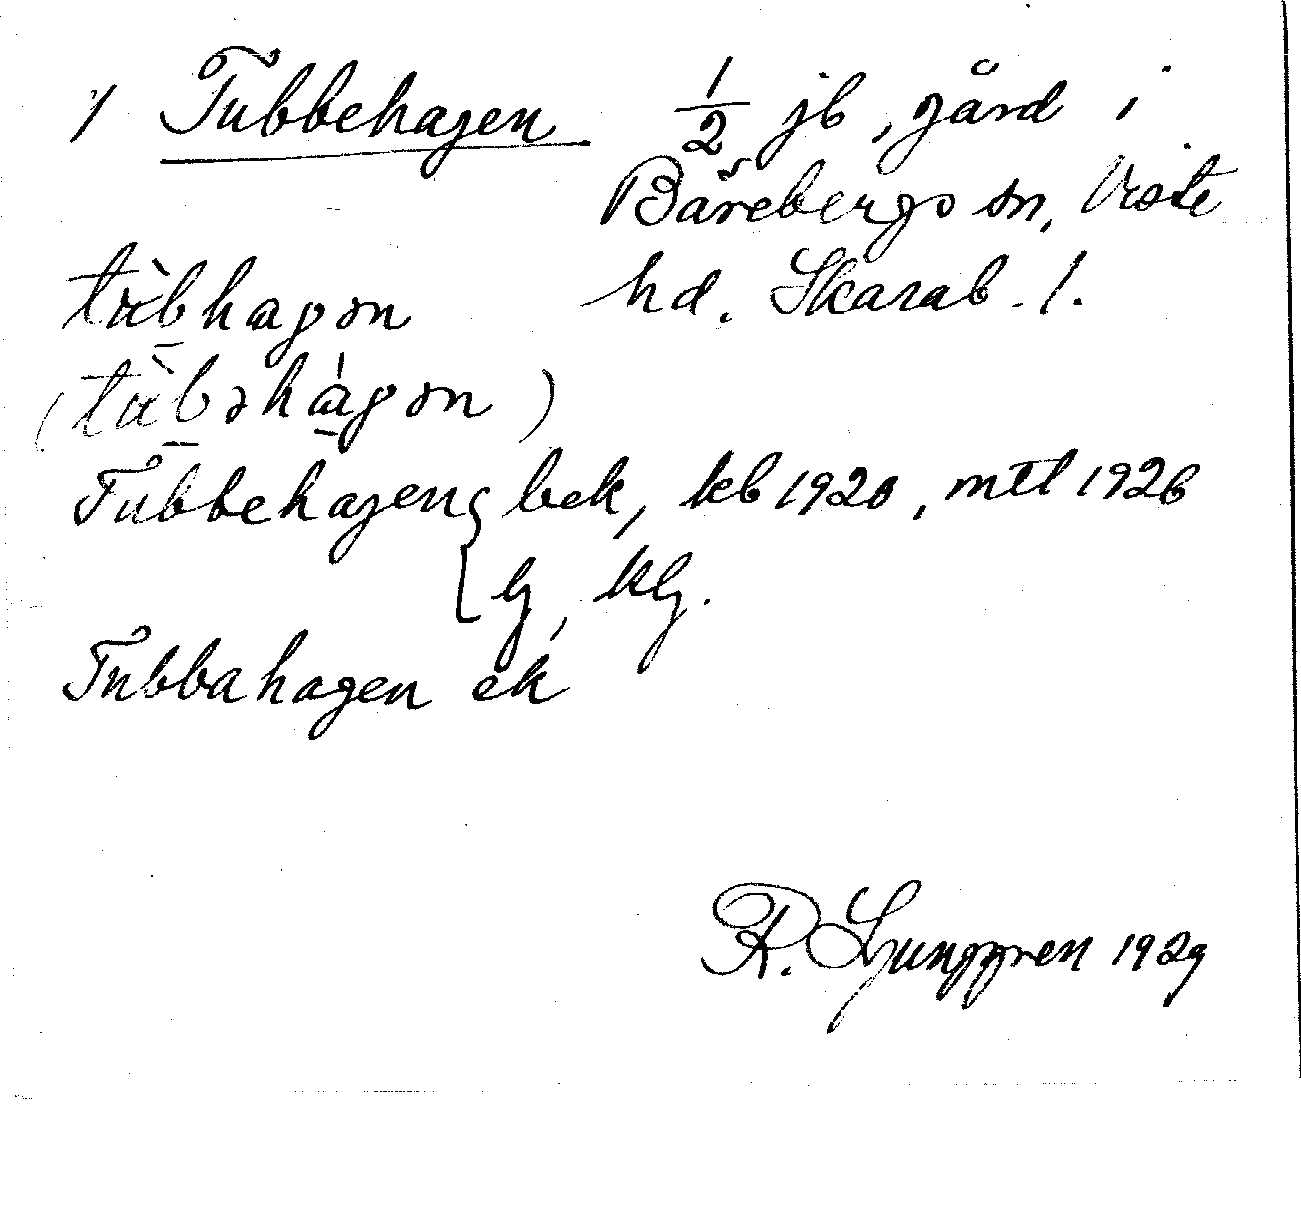 1/ Tubbehagen 1/2 jb, gård i
Bärebergs sn, Viste
hd. Skarab. l.
tùb̲hagən
(tùb̲əhág̲ən)
Tubbehagen { bek, kb 1920, mtl 1926
[ Ij, kIj.
Tubbahagen ek
R. Ljunggren 1929